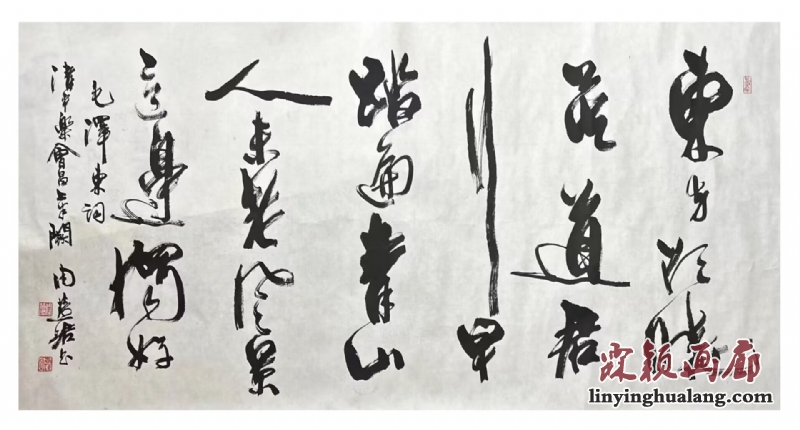 東方欲曉
莫道君
行早
踏遍青山
人未老風景
這邊獨好
毛澤東詞
清平樂會昌半闋 周慧珺书
霖颖画廊
linyinghualang.com